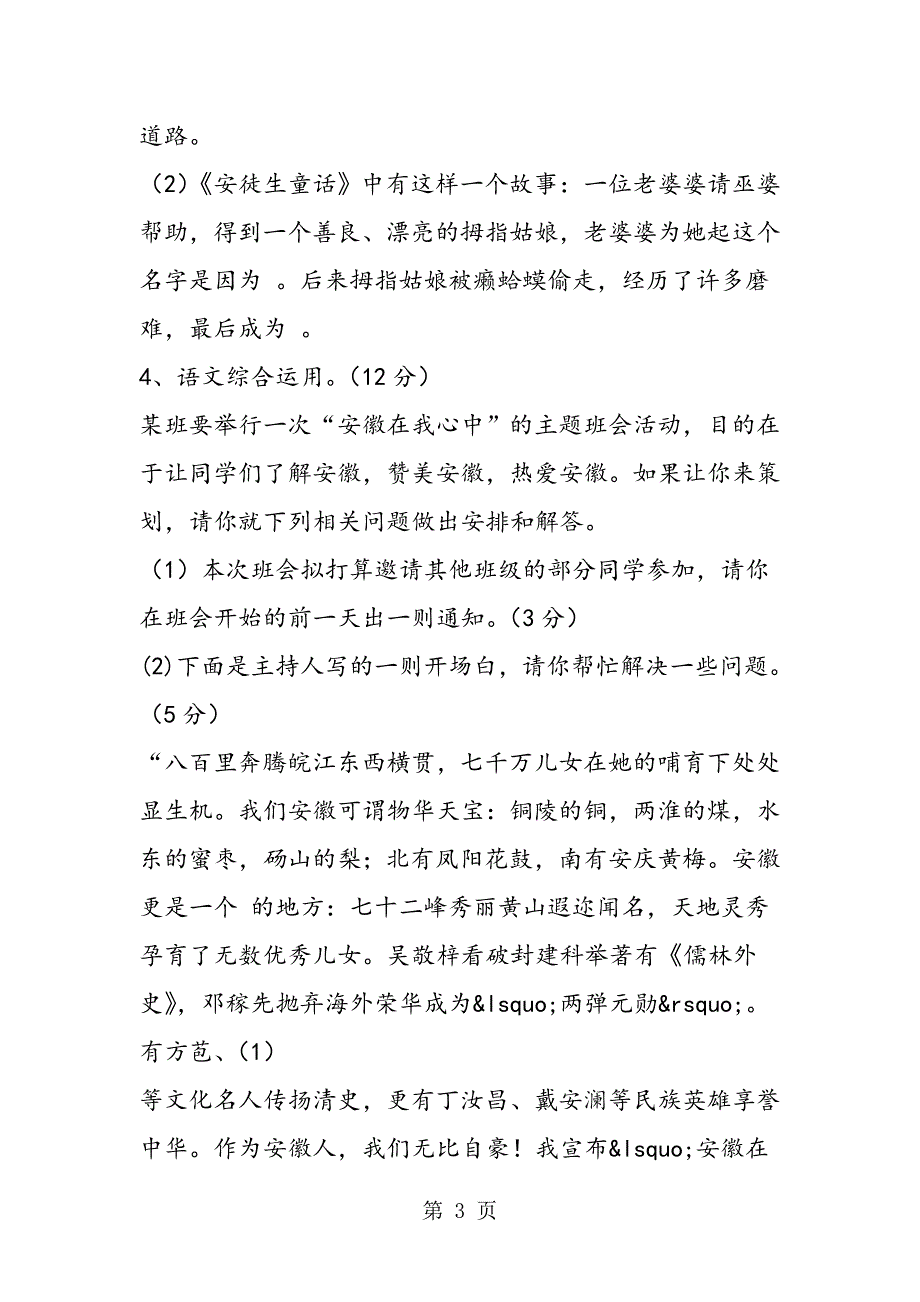 道路。
（2）《安徒生童话》中有这样一个故事：一位老婆婆请巫婆
帮助，得到一个善良、漂亮的拇指姑娘，老婆婆为她起这个
名字是因为 。后来拇指姑娘被癞蛤蟆偷走，经历了许多磨
难，最后成为 。
4、语文综合运用。（12 分）
某班要举行一次“安徽在我心中”的主题班会活动，目的在
于让同学们了解安徽，赞美安徽，热爱安徽。如果让你来策
划，请你就下列相关问题做出安排和解答。
（1）本次班会拟打算邀请其他班级的部分同学参加，请你
在班会开始的前一天出一则通知。（3 分）
(2)下面是主持人写的一则开场白，请你帮忙解决一些问题。
（5 分）
“八百里奔腾皖江东西横贯，七千万儿女在她的哺育下处处
显生机。我们安徽可谓物华天宝：铜陵的铜，两淮的煤，水
东的蜜枣，砀山的梨；北有凤阳花鼓，南有安庆黄梅。安徽
更是一个 的地方：七十二峰秀丽黄山遐迩闻名，天地灵秀
孕育了无数优秀儿女。吴敬梓看破封建科举著有《儒林外
史》，邓稼先抛弃海外荣华成为&lsquo;两弹元勋&rsquo;。
有方苞、（1）
等文化名人传扬清史，更有丁汝昌、戴安澜等民族英雄享誉
中华。作为安徽人，我们无比自豪！我宣布&lsquo;安徽在
第 3 页